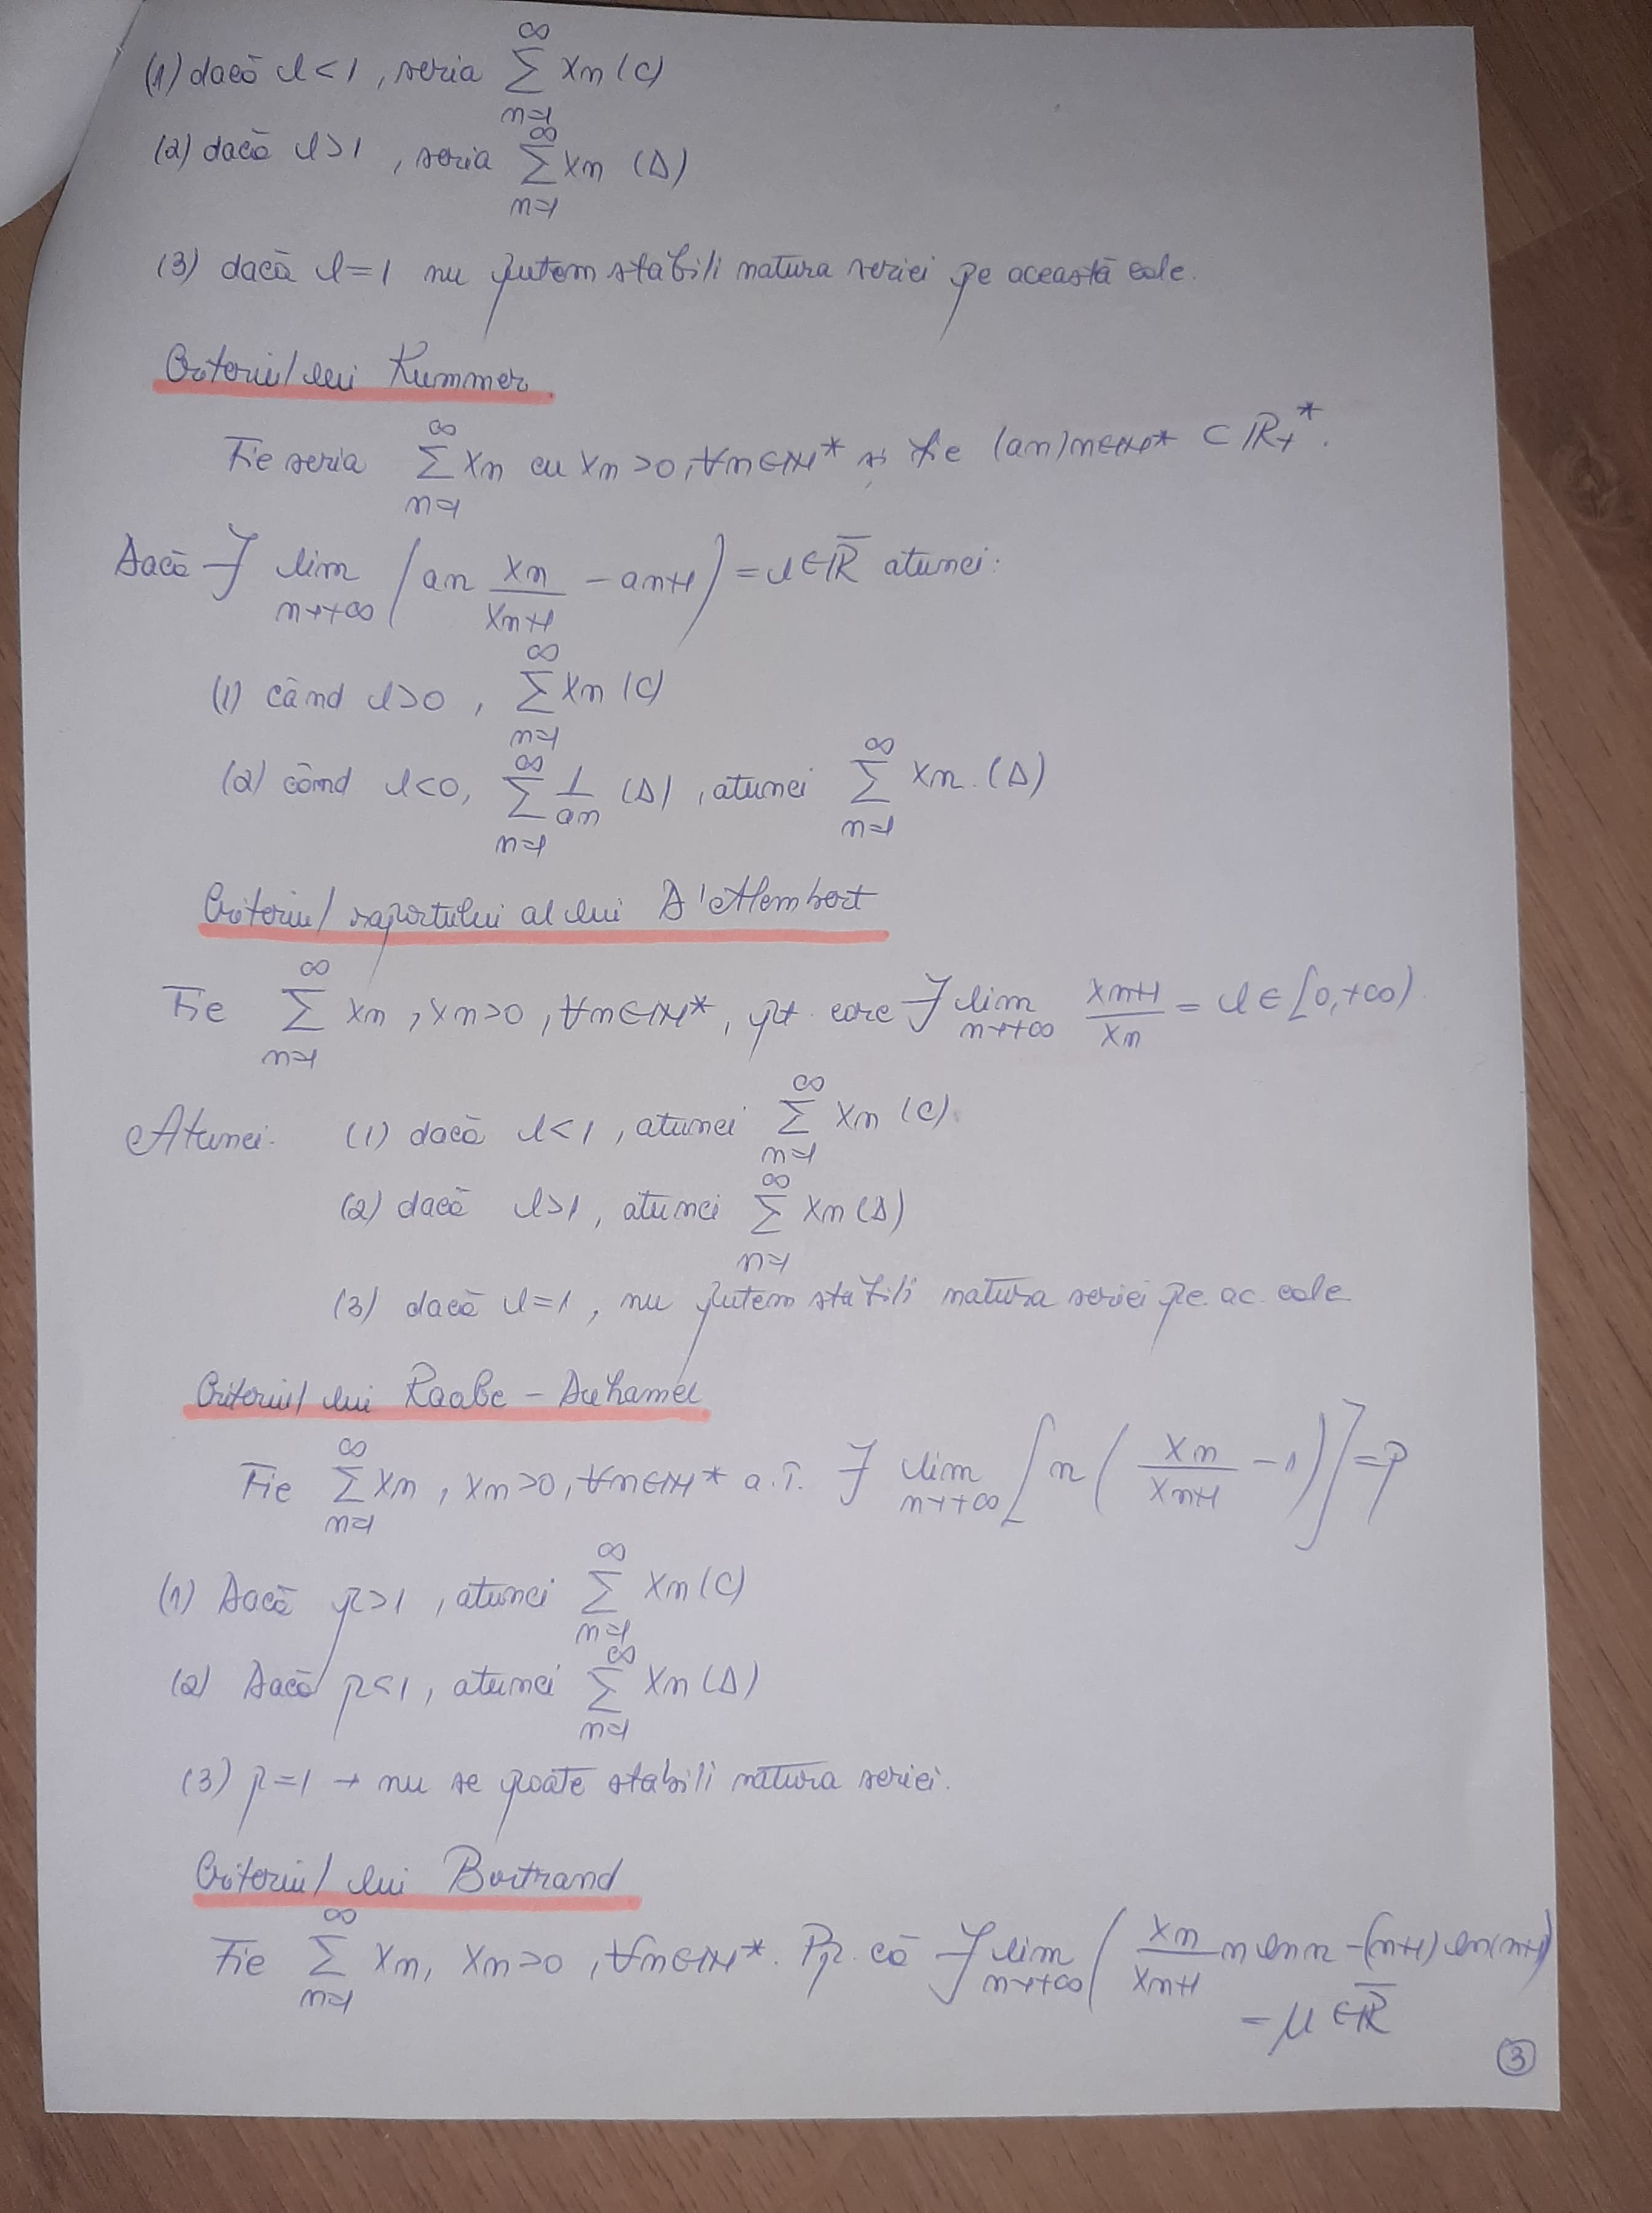 (1) dacă l<1, seria ∞∑n=1 xn (C)
(2) dacă l>1, seria ∞∑n=1 xn (D)
(3) dacă l=1 nu putem stabili natura seriei pe această cale.
Criteriul lui Kummer
Fie seria ∞∑n=1 xn cu xn>0, ∀n∈ℕ* și fie (an)n∈ℕ* ⊂ ℝ+*.
Dacă ∃ lim n→+∞ (an xn/xn+1 - an+1) = l∈ℝ̅ atunci:
(1) când l>0, ∞∑n=1 xn (C)
(2) când l<0, ∞∑n=1 1/an (D), atunci ∞∑n=1 xn. (D)
Criteriul raportului al lui D'Alembert
Fie ∞∑n=1 xn, xn>0, ∀n∈ℕ*, pt. care ∃ lim n→+∞ xn+1/xn = l∈[0,+∞)
Atunci: (1) dacă l<1, atunci ∞∑n=1 xn (C).
(2) dacă l>1, atunci ∞∑n=1 xn (D)
(3) dacă l=1, nu putem stabili natura seriei pe ac. cale
Criteriul lui Raabe - Duhamel
Fie ∞∑n=1 xn, xn>0, ∀n∈ℕ* a.î. ∃ lim n→+∞ [n(xn/xn+1 -1)]=p
(1) Dacă p>1, atunci ∞∑n=1 xn (C)
(2) Dacă p<1, atunci ∞∑n=1 xn (D)
(3) p=1 → nu se poate stabili natura seriei.
Criteriul lui Bertrand
Fie ∞∑n=1 xn, xn>0, ∀n∈ℕ*. Pp. că ∃ lim n→+∞ (xn/xn+1 n ln n -(n+1) ln(n+1)
= μ ∈ℝ̅
3